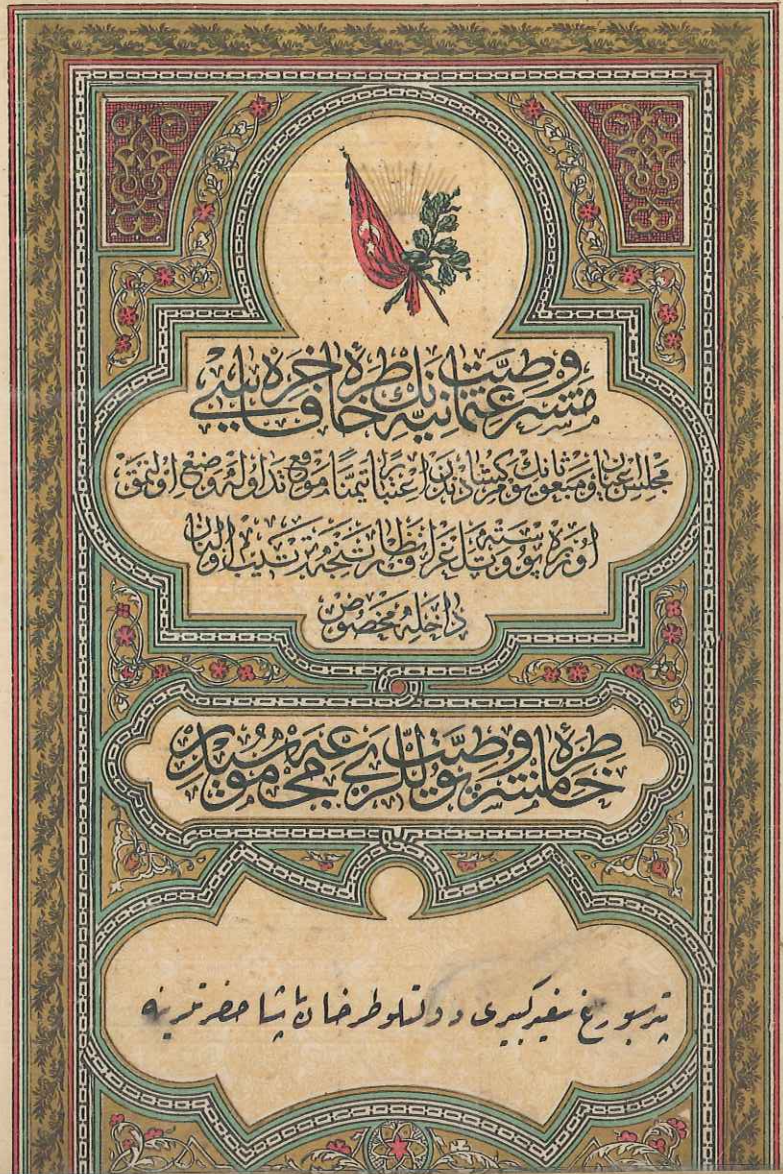 مشروطیت عثمانیه نك خاطرۀ فاخره سی
مجلس اعیان و مبعوثانك یوم كشادندن اعتباراً تیمناً موقع تداوله وضع اولنمق
اوزره پوسته و تلغراف نظارتنجه ترتیب اولنان
داخله مخصوص
خاطرۀ مشروطیت پوللری مجموعه سیدر
پترسبورغ سفیر كبیری دولتلو طرخان پاشا حضرتلرینه